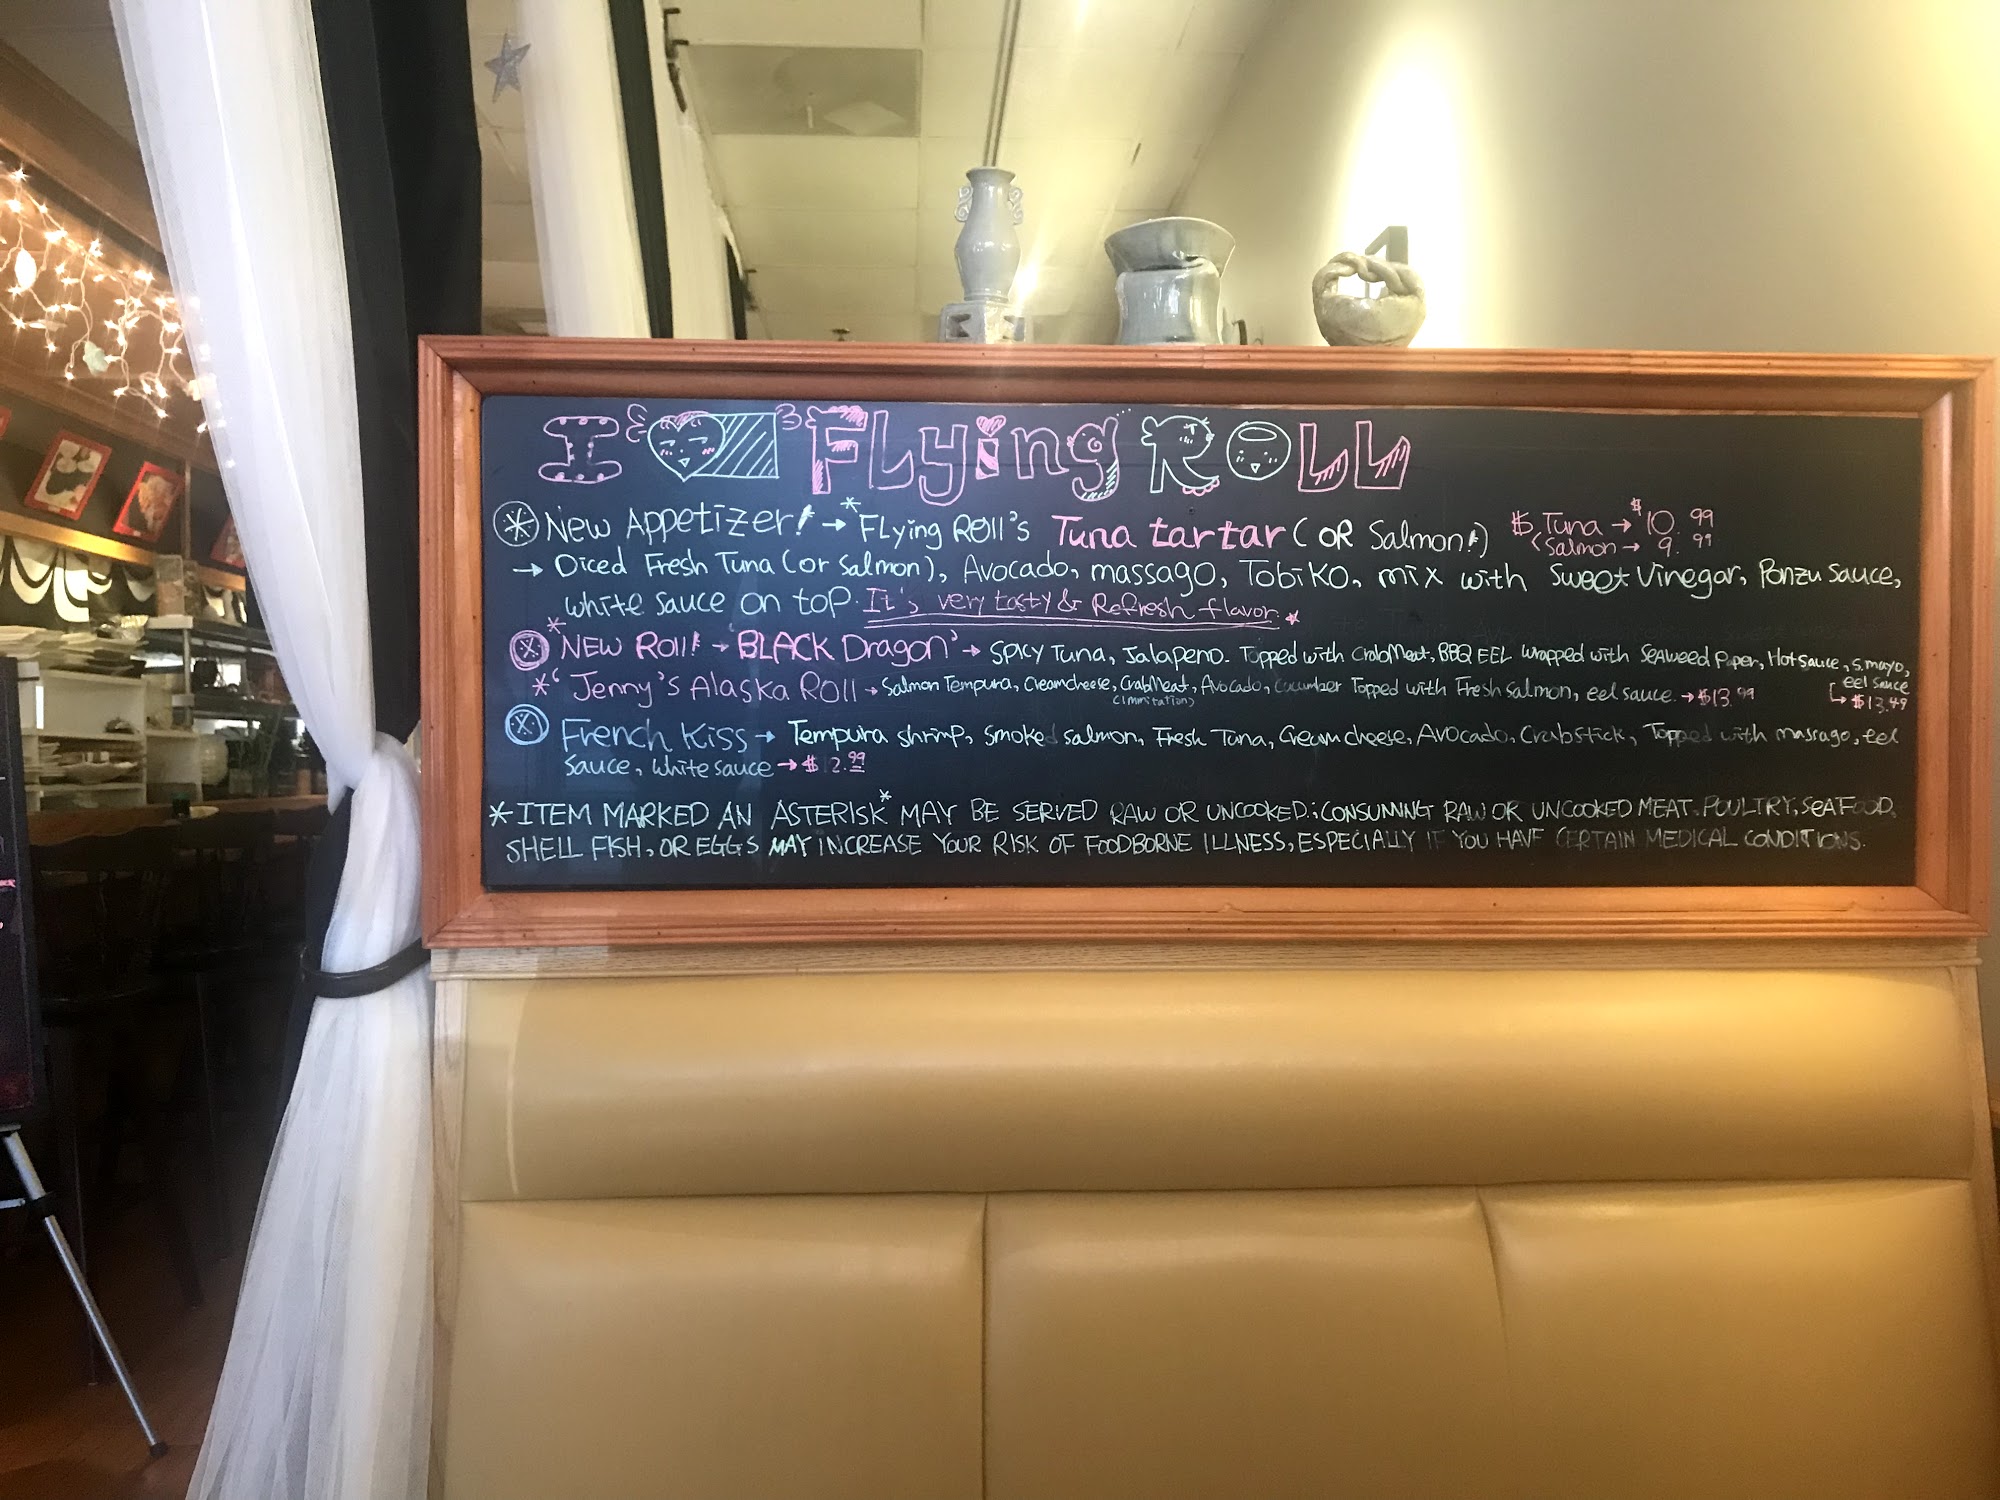 I FLying ROLL
* New Appetizer! → * FLying Roll's Tuna tartar (OR Salmon!) $ Tuna → $10.99
Salmon → 9.99
→ Diced Fresh Tuna (or Salmon), Avocado, massago, Tobiko, mix with Sweet Vinegar, Ponzu Sauce,
white sauce on top. It's very tasty & Refresh flavor.
* NEW Roll! → BLACK Dragon' → Spicy Tuna, Jalapeno. Topped with CrabMeat, BBQ EEL wrapped with Seaweed Paper, Hot sauce, S.mayo,
eel sauce
→ $13.49
* 'Jenny's Alaska Roll → Salmon Tempura, Creamcheese, CrabMeat, Avocado, Cucumber Topped with Fresh Salmon, eel sauce. → $13.99
(immitation)
French Kiss → Tempura shrimp, Smoked salmon, Fresh Tuna, Cream cheese, Avocado, Crabstick, Topped with massago, eel
sauce, white sauce → $12.99
* ITEM MARKED AN ASTERISK * MAY BE SERVED RAW OR UNCOOKED.; CONSUMING RAW OR UNCOOKED MEAT, POULTRY, SEAFOOD,
SHELL FISH, OR EGGS MAY INCREASE YOUR RISK OF FOODBORNE ILLNESS, ESPECIALLY IF YOU HAVE CERTAIN MEDICAL CONDITIONS.